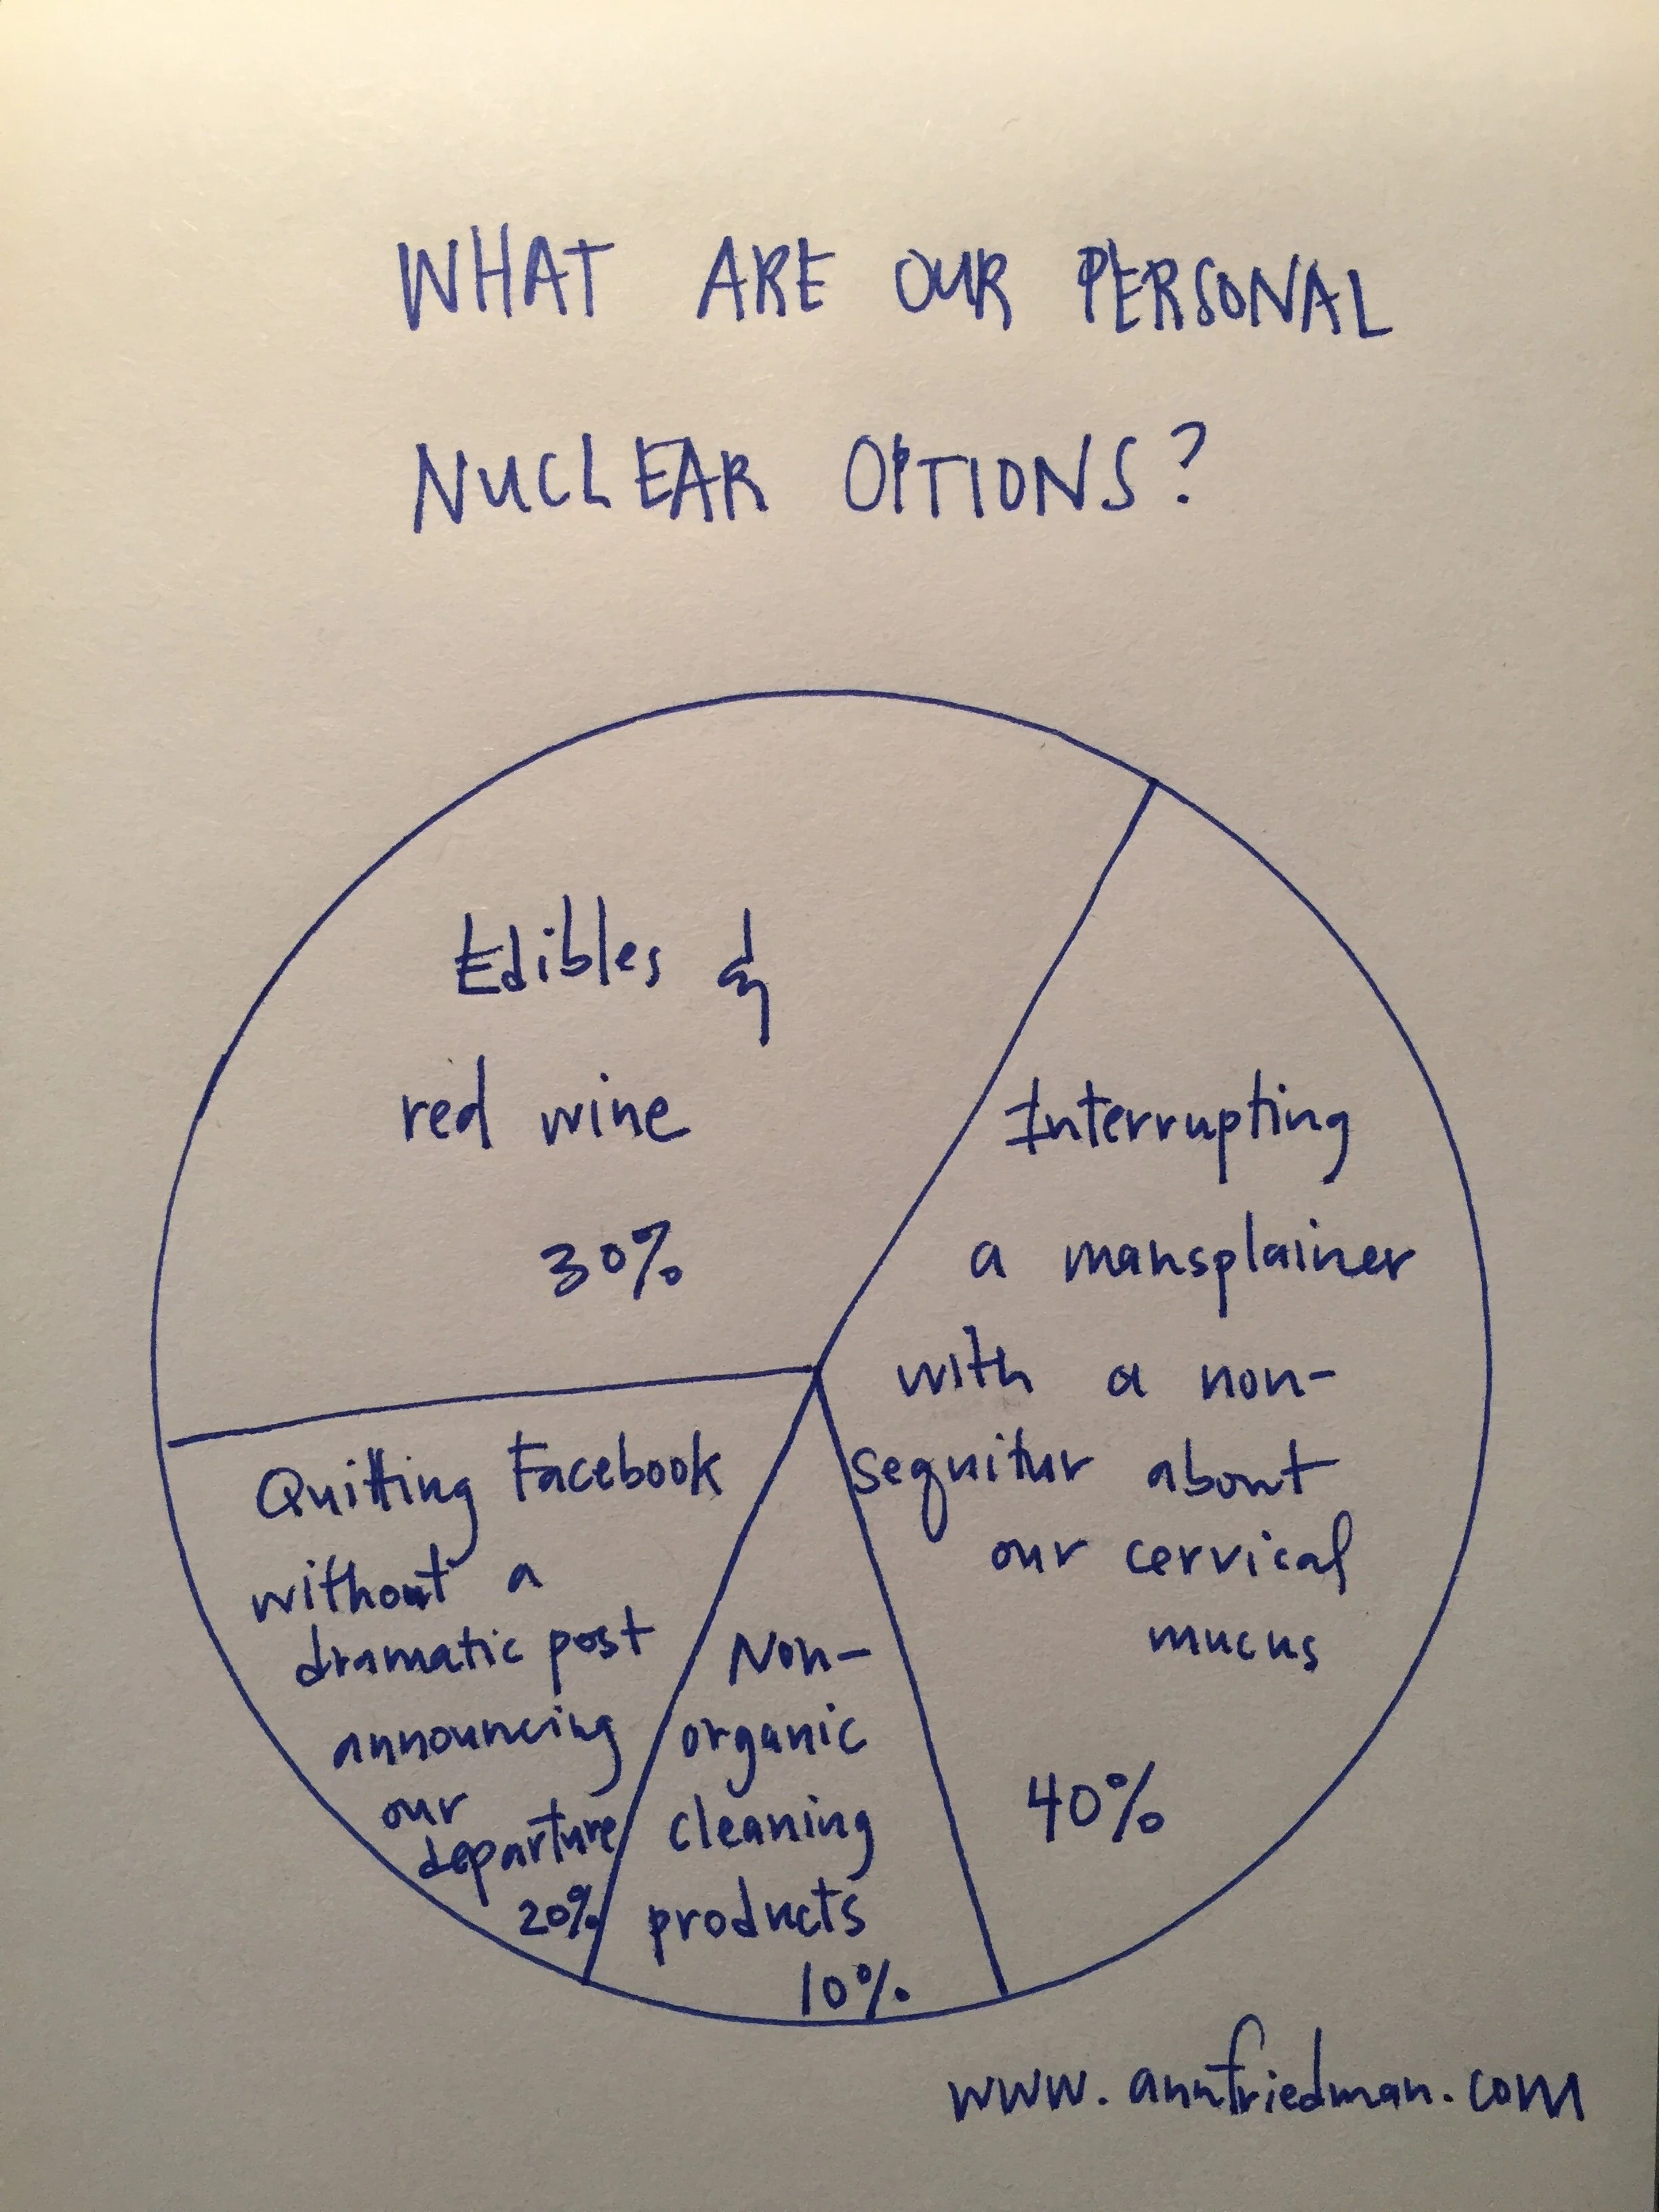 WHAT ARE OUR PERSONAL
NUCLEAR OPTIONS?
Edibles &
red wine
30%
Interrupting
a mansplainer
with a non-
sequitur about
our cervical
mucus
40%
Quitting Facebook
without a
dramatic post
announcing
our
departure
20%
Non-
organic
cleaning
products
10%
www.annfriedman.com